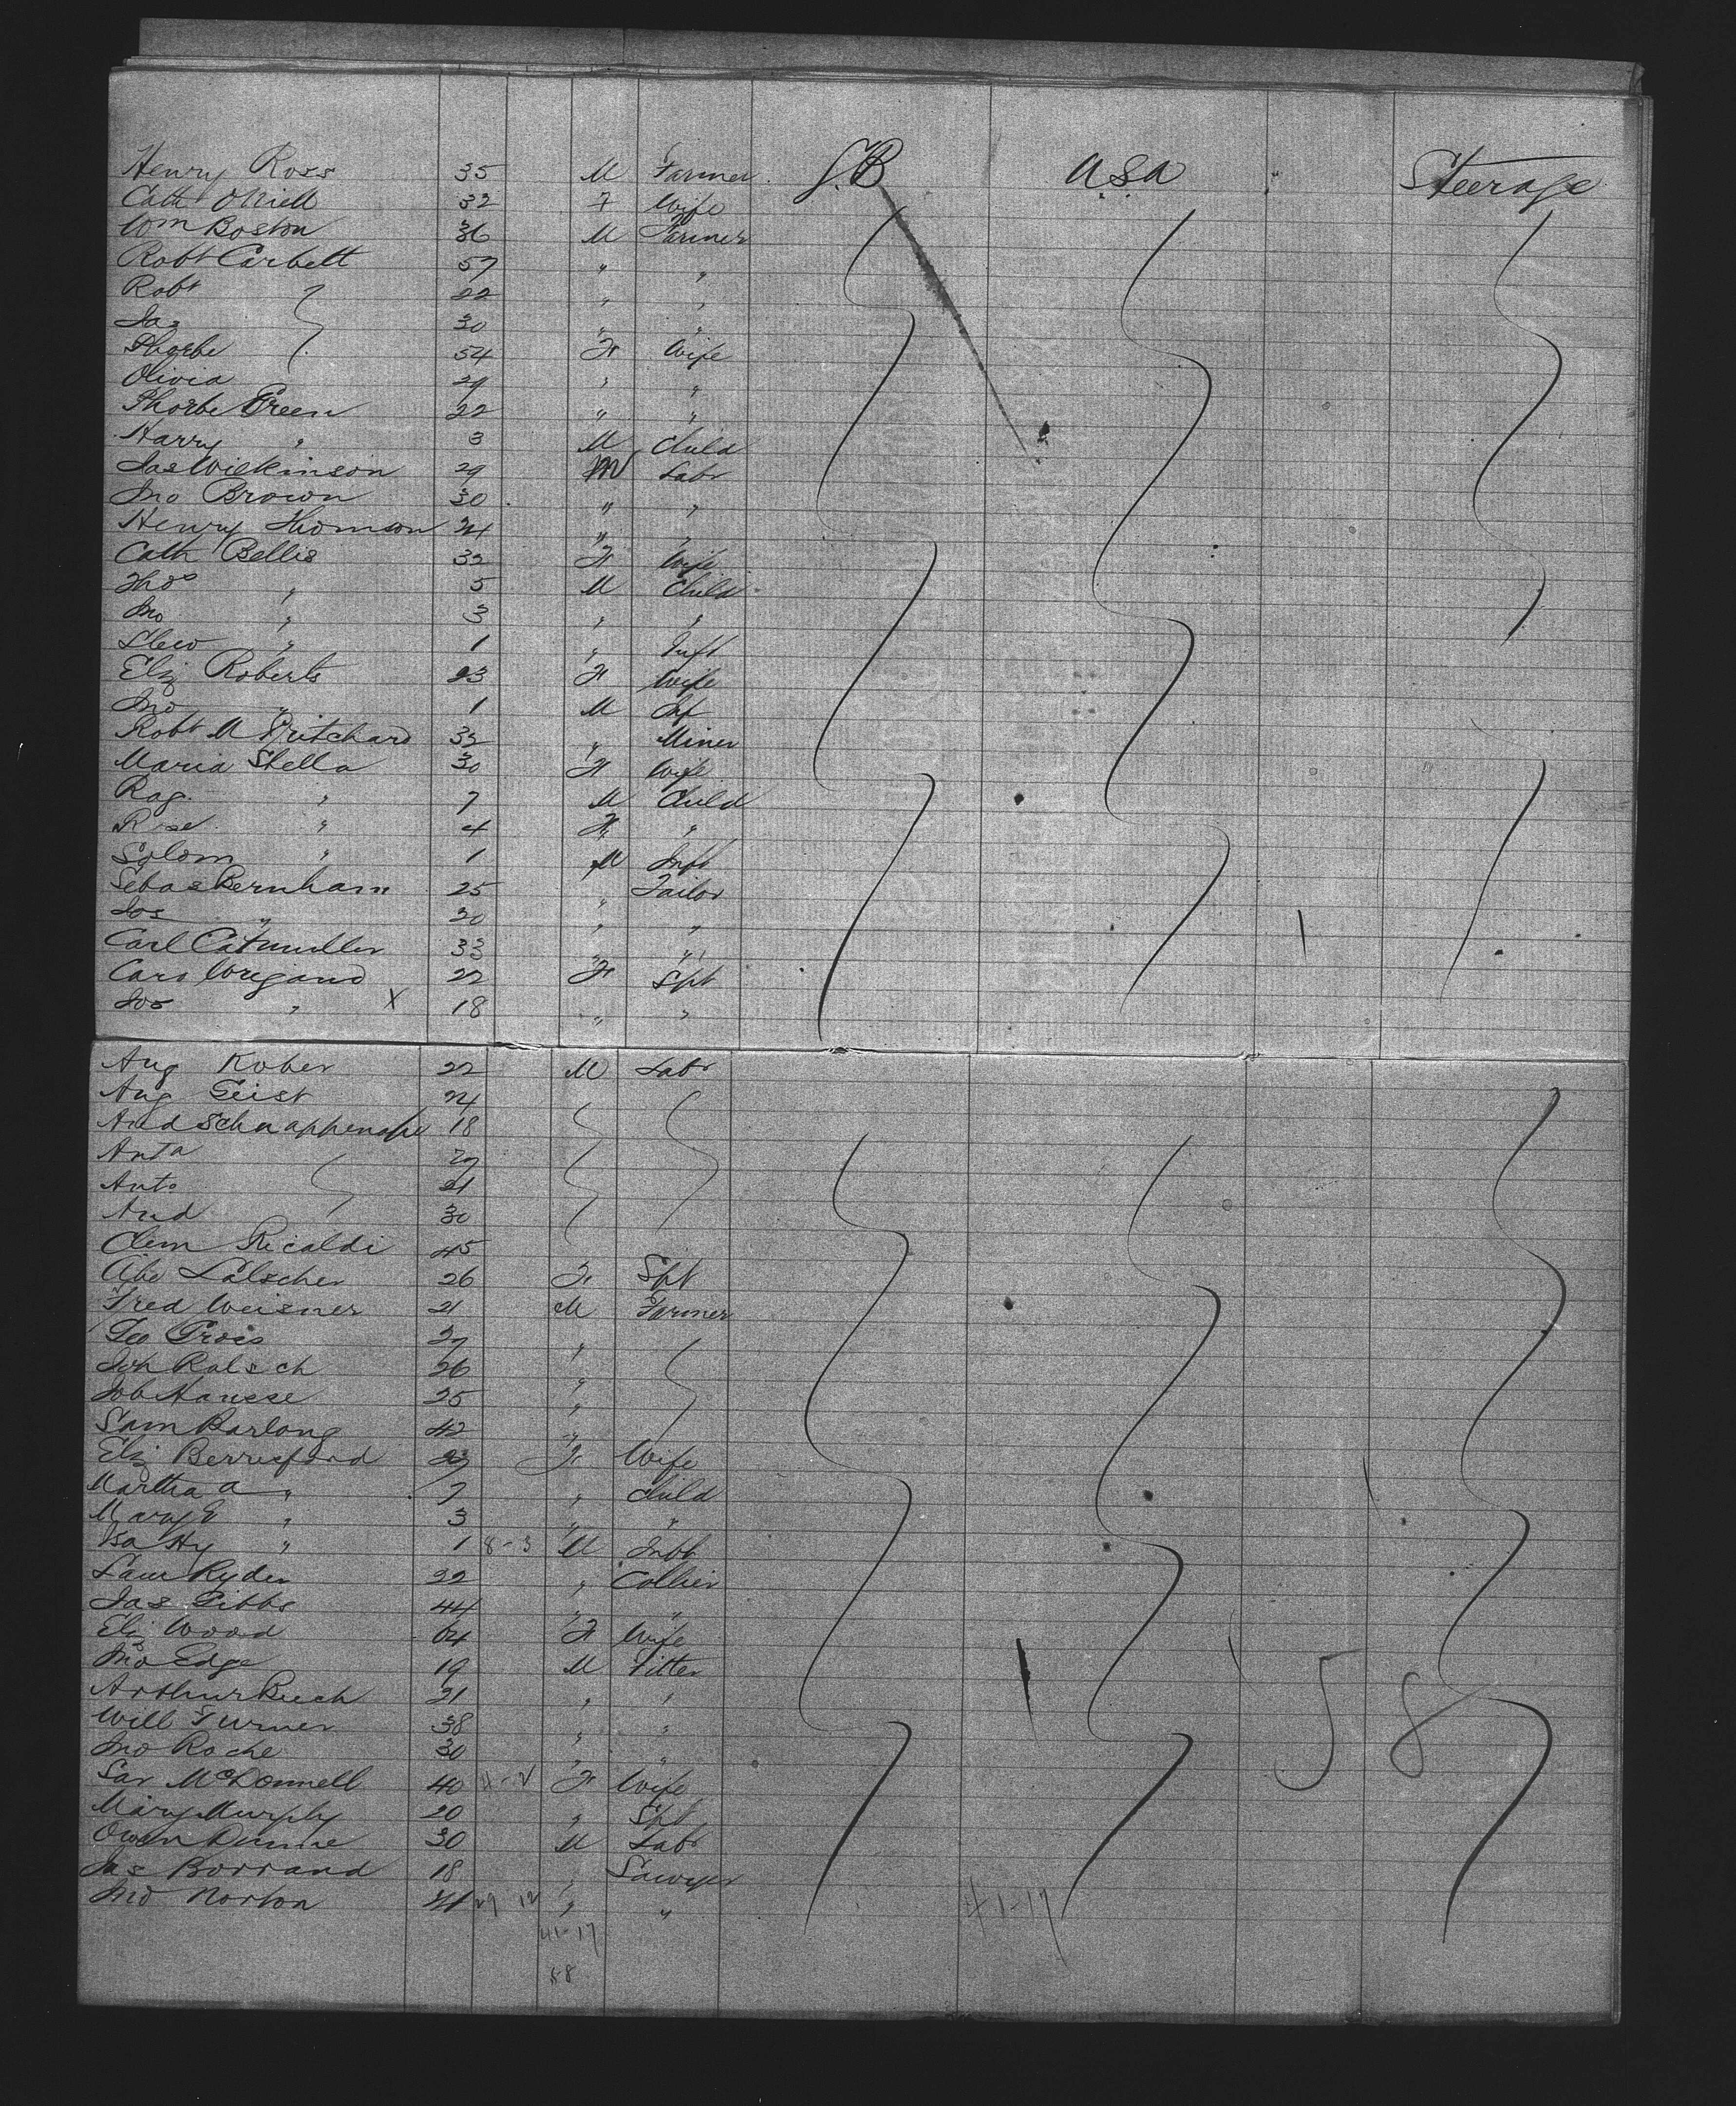 Henry Ross 35 M Farmer G.B USA Steerage
Cath ONiell 32 F Wife
Wm Boston 36 M Farmer
Robt Carbett 57 " "
Robt 22 " "
Jas 30 " "
Phoebe 54 F Wife
Olivia 29 " "
Phoebe Green 22 " "
Harry " 3 M Child
Jas Wilkinson 29 M Labr
Jno Brown 30 " "
Henry Thomson 24 " "
Cath Bellis 32 F Wife
Thos " 5 M Child
Jno " 3 " "
Llew " 1 " Inft
Eliz Roberts 23 F Wife
Jno " 1 M Inf
Robt M Pritchard 32 " Miner
Maria Stella 30 F Wife
Rag. " 7 M Child
Rose " 4 F "
Solom " 1 M Inft
Sebas Bernham 25 " Tailor
Jos " 20 " "
Carl Catmuller 33 " "
Caro Wregand 22 F Spt
Jos " X 18 " "
Aug Kober 22 M Labr
Aug Geist 24
And 18
Anta 27
Anto 21
And 30
Clem Ricaldi 45
Abe Lalscher 26 F Spt
Fred Weisner 21 M Farmer
Geo Grois 27 "
Joh Ralsch 26 "
Job Hausse 25 "
Sam Barlong 42 "
Eliz Berresford 27 F Wife
Martha A " 7 " Child
Mary E " 3 " "
Isa Hy " 1 8-3 M Inft
Sam Ryder 22 " Collier
Jas Gibbs 44 " "
Eliz Wood 64 F Wife
Jno Edge 19 M Fitter
Arthur Buch 21 " "
Will Turner 38 " "
Jno Roche 30 " "
Sar McDonnell 40 4-2 F Wife
Mary Murphy 20 " Spt
Owen Dunne 30 M Labr
Jas Borrand 18 " Sawyer
Jno Norton 41 29 12 " " 41-17
41-17
58
58